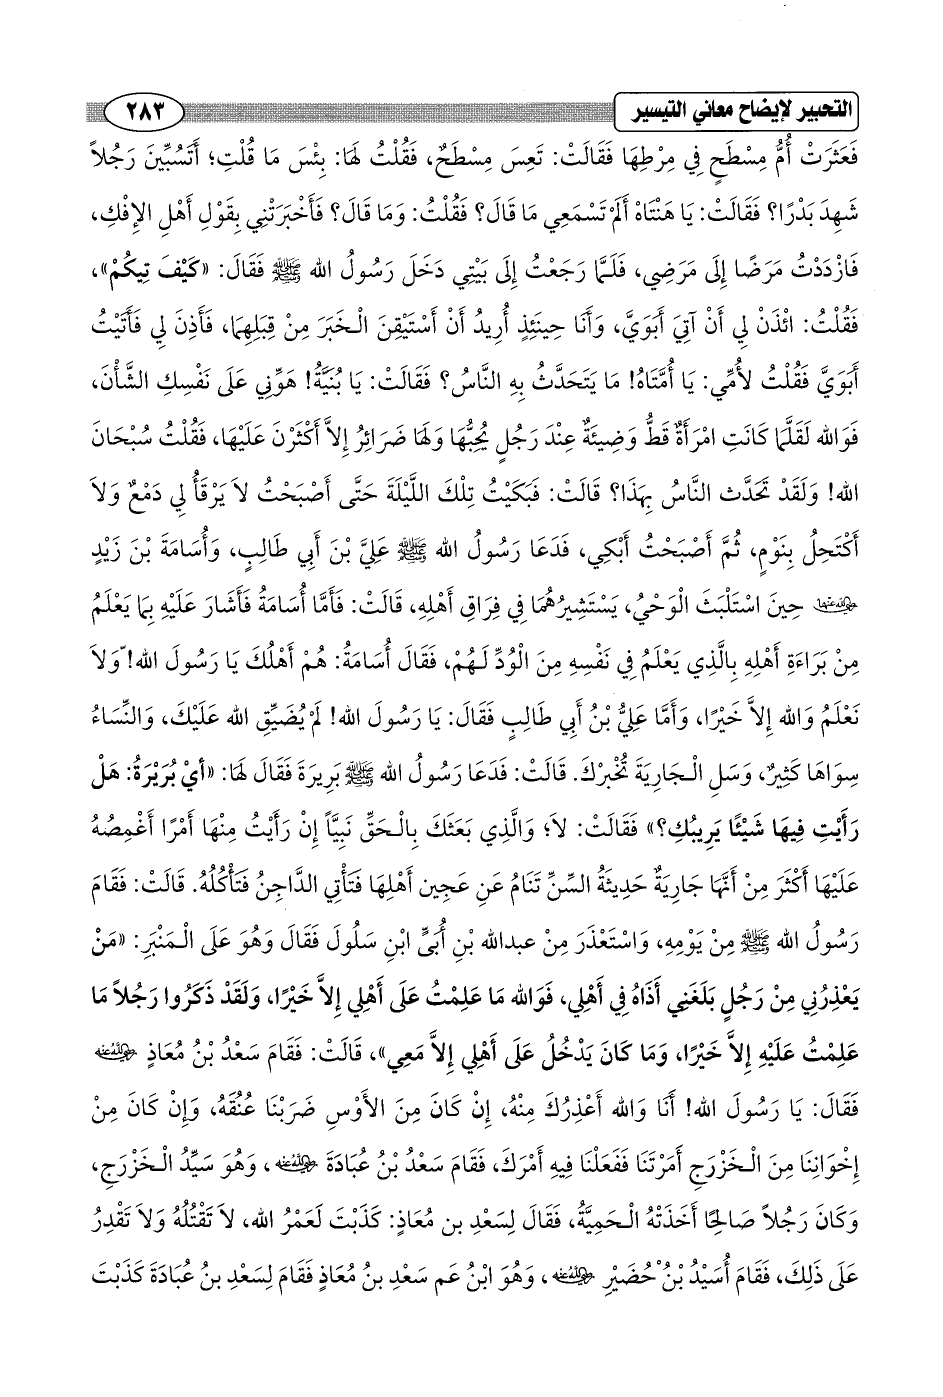 التحبير لإيضاح معاني التيسير ٢٨٣
فَعَثَرَتْ أُمُّ مِسْطَحٍ فِي مِرْطِهَا فَقَالَتْ: تَعِسَ مِسْطَحٌ، فَقُلْتُ لَهَا: بِئْسَ مَا قُلْتِ؛ أَتَسُبِّينَ رَجُلاً
شَهِدَ بَدْرًا؟ فَقَالَتْ: يَا هَنْتَاه أَلَمْ تَسْمَعِي مَا قَالَ؟ فَقُلْتُ: وَمَا قَالَ؟ فَأَخْبَرَتْنِي بِقَوْلِ أَهْلِ الإِفْكِ،
فَازْدَدْتُ مَرَضًا إِلَى مَرَضِي، فَلَمَّا رَجَعْتُ إِلَى بَيْتِي دَخَلَ رَسُولُ الله ﷺ فَقَالَ: «كَيْفَ تِيكُمْ»،
فَقُلْتُ: ائْذَنْ لِي أَنْ آتِيَ أَبَوَيَّ، وَأَنَا حِينَئِذٍ أُرِيدُ أَنْ أَسْتَيْقِنَ الْخَبَرَ مِنْ قِبَلِهِمَا، فَأَذِنَ لِي فَأَتَيْتُ
أَبَوَيَّ فَقُلْتُ لأُمِّي: يَا أُمَّتَاهُ! مَا يَتَحَدَّثُ بِهِ النَّاسُ؟ فَقَالَتْ: يَا بُنَيَّةُ! هَوِّنِي عَلَى نَفْسِكِ الشَّأْنَ،
فَوَالله لَقَلَّمَا كَانَتِ امْرَأَةٌ قَطُّ وَضِيئَةٌ عِنْدَ رَجُلٍ يُحِبُّهَا وَلَهَا ضَرَائِرُ إِلاَّ أَكْثَرْنَ عَلَيْهَا، فَقُلْتُ سُبْحَانَ
الله! وَلَقَدْ تَحَدَّث النَّاسُ بِهَذَا؟ قَالَتْ: فَبَكَيْتُ تِلْكَ اللَّيْلَةَ حَتَّى أَصْبَحْتُ لاَ يَرْقَأُ لِي دَمْعٌ وَلاَ
أَكْتَحِلُ بِنَوْمٍ، ثُمَّ أَصْبَحْتُ أَبْكِي، فَدَعَا رَسُولُ الله ﷺ عَلِيَّ بْنَ أَبِي طَالِبٍ، وَأُسَامَةَ بْنَ زَيْدٍ
رضي الله عنهما حِينَ اسْتَلْبَثَ الْوَحْيُ، يَسْتَشِيرُهُمَا فِي فِرَاقِ أَهْلِهِ، قَالَتْ: فَأَمَّا أُسَامَةُ فَأَشَارَ عَلَيْهِ بِمَا يَعْلَمُ
مِنْ بَرَاءَةِ أَهْلِهِ بِالَّذِي يَعْلَمُ فِي نَفْسِهِ مِنَ الْوُدِّ لَهُمْ، فَقَالَ أُسَامَةُ: هُمْ أَهْلُكَ يَا رَسُولَ الله! وَلاَ
نَعْلَمُ وَالله إِلاَّ خَيْرًا، وَأَمَّا عَلِيُّ بْنُ أَبِي طَالِبٍ فَقَالَ: يَا رَسُولَ الله! لَمْ يُضَيِّقِ الله عَلَيْكَ، وَالنِّسَاءُ
سِوَاهَا كَثِيرٌ، وَسَلِ الْجَارِيَةَ تُخْبِرْكَ. قَالَتْ: فَدَعَا رَسُولُ الله ﷺ بَرِيرَةَ فَقَالَ لَهَا: «أَيْ بُرَيْرَةُ: هَلْ
رَأَيْتِ فِيهَا شَيْئًا يَرِيبُكِ؟» فَقَالَتْ: لاَ؛ وَالَّذِي بَعَثَكَ بِالْحَقِّ نَبِيًّا إِنْ رَأَيْتُ مِنْهَا أَمْرًا أَغْمِصُهُ
عَلَيْهَا أَكْثَرَ مِنْ أَنَّهَا جَارِيَةٌ حَدِيثَةُ السِّنِّ تَنَامُ عَنِ عَجِينِ أَهْلِهَا فَتَأْتِي الدَّاجِنُ فَتَأْكُلُهُ. قَالَتْ: فَقَامَ
رَسُولُ الله ﷺ مِنْ يَوْمِهِ، وَاسْتَعْذَرَ مِنْ عبدالله بْنِ أُبَيٍّ ابْنِ سَلُولَ فَقَالَ وَهُوَ عَلَى الْمَنْبَرِ: «مَنْ
يَعْذِرُنِي مِنْ رَجُلٍ بَلَغَنِي أَذَاهُ فِي أَهْلِي، فَوَالله مَا عَلِمْتُ عَلَى أَهْلِي إِلاَّ خَيْرًا، وَلَقَدْ ذَكَرُوا رَجُلاً مَا
عَلِمْتُ عَلَيْهِ إِلاَّ خَيْرًا، وَمَا كَانَ يَدْخُلُ عَلَى أَهْلِي إِلاَّ مَعِي»، قَالَتْ: فَقَامَ سَعْدُ بْنُ مُعَاذٍ رضي الله عنه
فَقَالَ: يَا رَسُولَ الله! أَنَا وَالله أَعْذِرُكَ مِنْهُ، إِنْ كَانَ مِنَ الأَوْسِ ضَرَبْنَا عُنُقَهُ، وَإِنْ كَانَ مِنْ
إِخْوَانِنَا مِنَ الْخَزْرَجِ أَمَرْتَنَا فَفَعَلْنَا فِيهِ أَمْرَكَ، فَقَامَ سَعْدُ بْنُ عُبَادَةَ رضي الله عنه، وَهُوَ سَيِّدُ الْخَزْرَجِ،
وَكَانَ رَجُلاً صَالِحًا أَخَذَتْهُ الْحَمِيَّةُ، فَقَالَ لِسَعْدِ بن مُعَاذٍ: كَذَبْتَ لَعَمْرُ الله، لاَ تَقْتُلُهُ وَلاَ تَقْدِرُ
عَلَى ذَلِكَ، فَقَامَ أُسَيْدُ بْنُ حُضَيْرٍ رضي الله عنه، وَهُوَ ابْنُ عَم سَعْدِ بنُ مُعَاذٍ فَقَامَ لِسَعْدِ بنُ عُبَادَةَ كَذَبْتَ